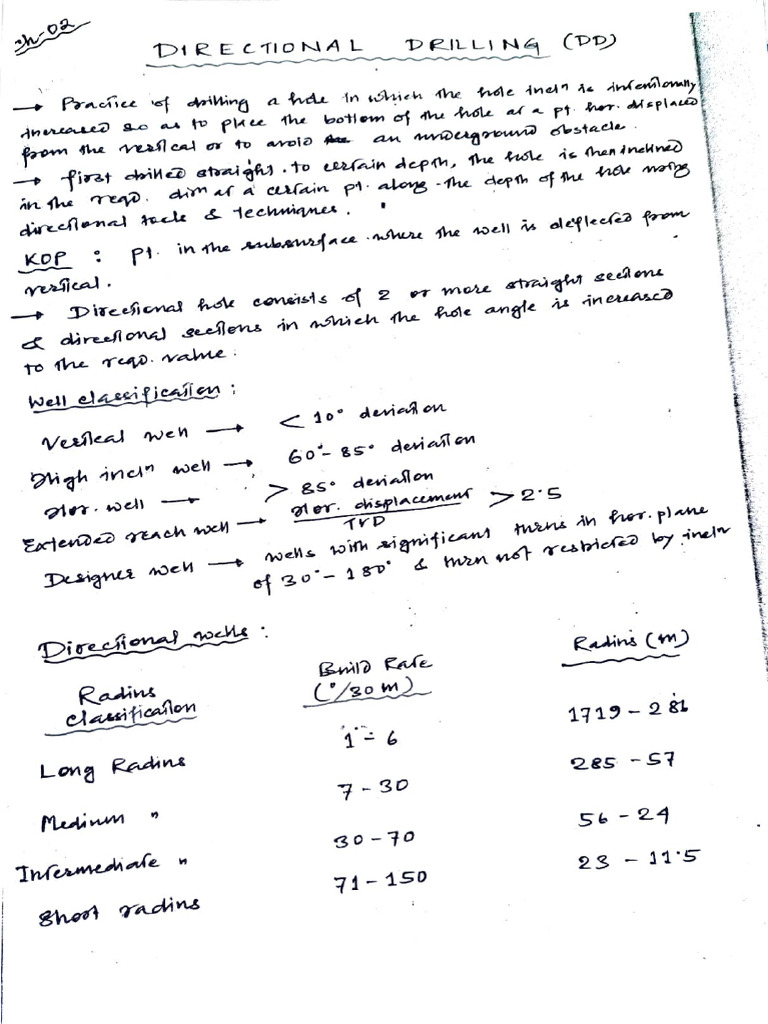 Ch-02
DIRECTIONAL DRILLING (DD)
→ Practice of drilling a hole in which the hole incln is intentionally
increased so as to place the bottom of the hole at a pt. hor. displaced
from the vertical or to avoid an underground obstacle.
→ first drilled straight to certain depth, the hole is then inclined
in the reqd. dirn at a certain pt. along the depth of the hole using
directional tools & techniques.
KOP : pt. in the subsurface where the well is deflected from
vertical.
→ Directional hole consists of 2 or more straight sections
& directional sections in which the hole angle is increased
to the reqd. value.
Well classification :
Vertical well → < 10° deviation
High incln well → 60° - 85° deviation
Hor. well → > 85° deviation
Extended reach well → Hor. displacement / TVD > 2.5
Designer well → wells with significant turns in hor. plane
of 30° - 180° & turn not restricted by incln
Directional wells :
Radius classification Build Rate (°/30 m) Radius (m)
Long Radius 1 - 6 1719 - 286
Medium " 7 - 30 285 - 57
Intermediate " 30 - 70 56 - 24
Short radius 71 - 150 23 - 11.5